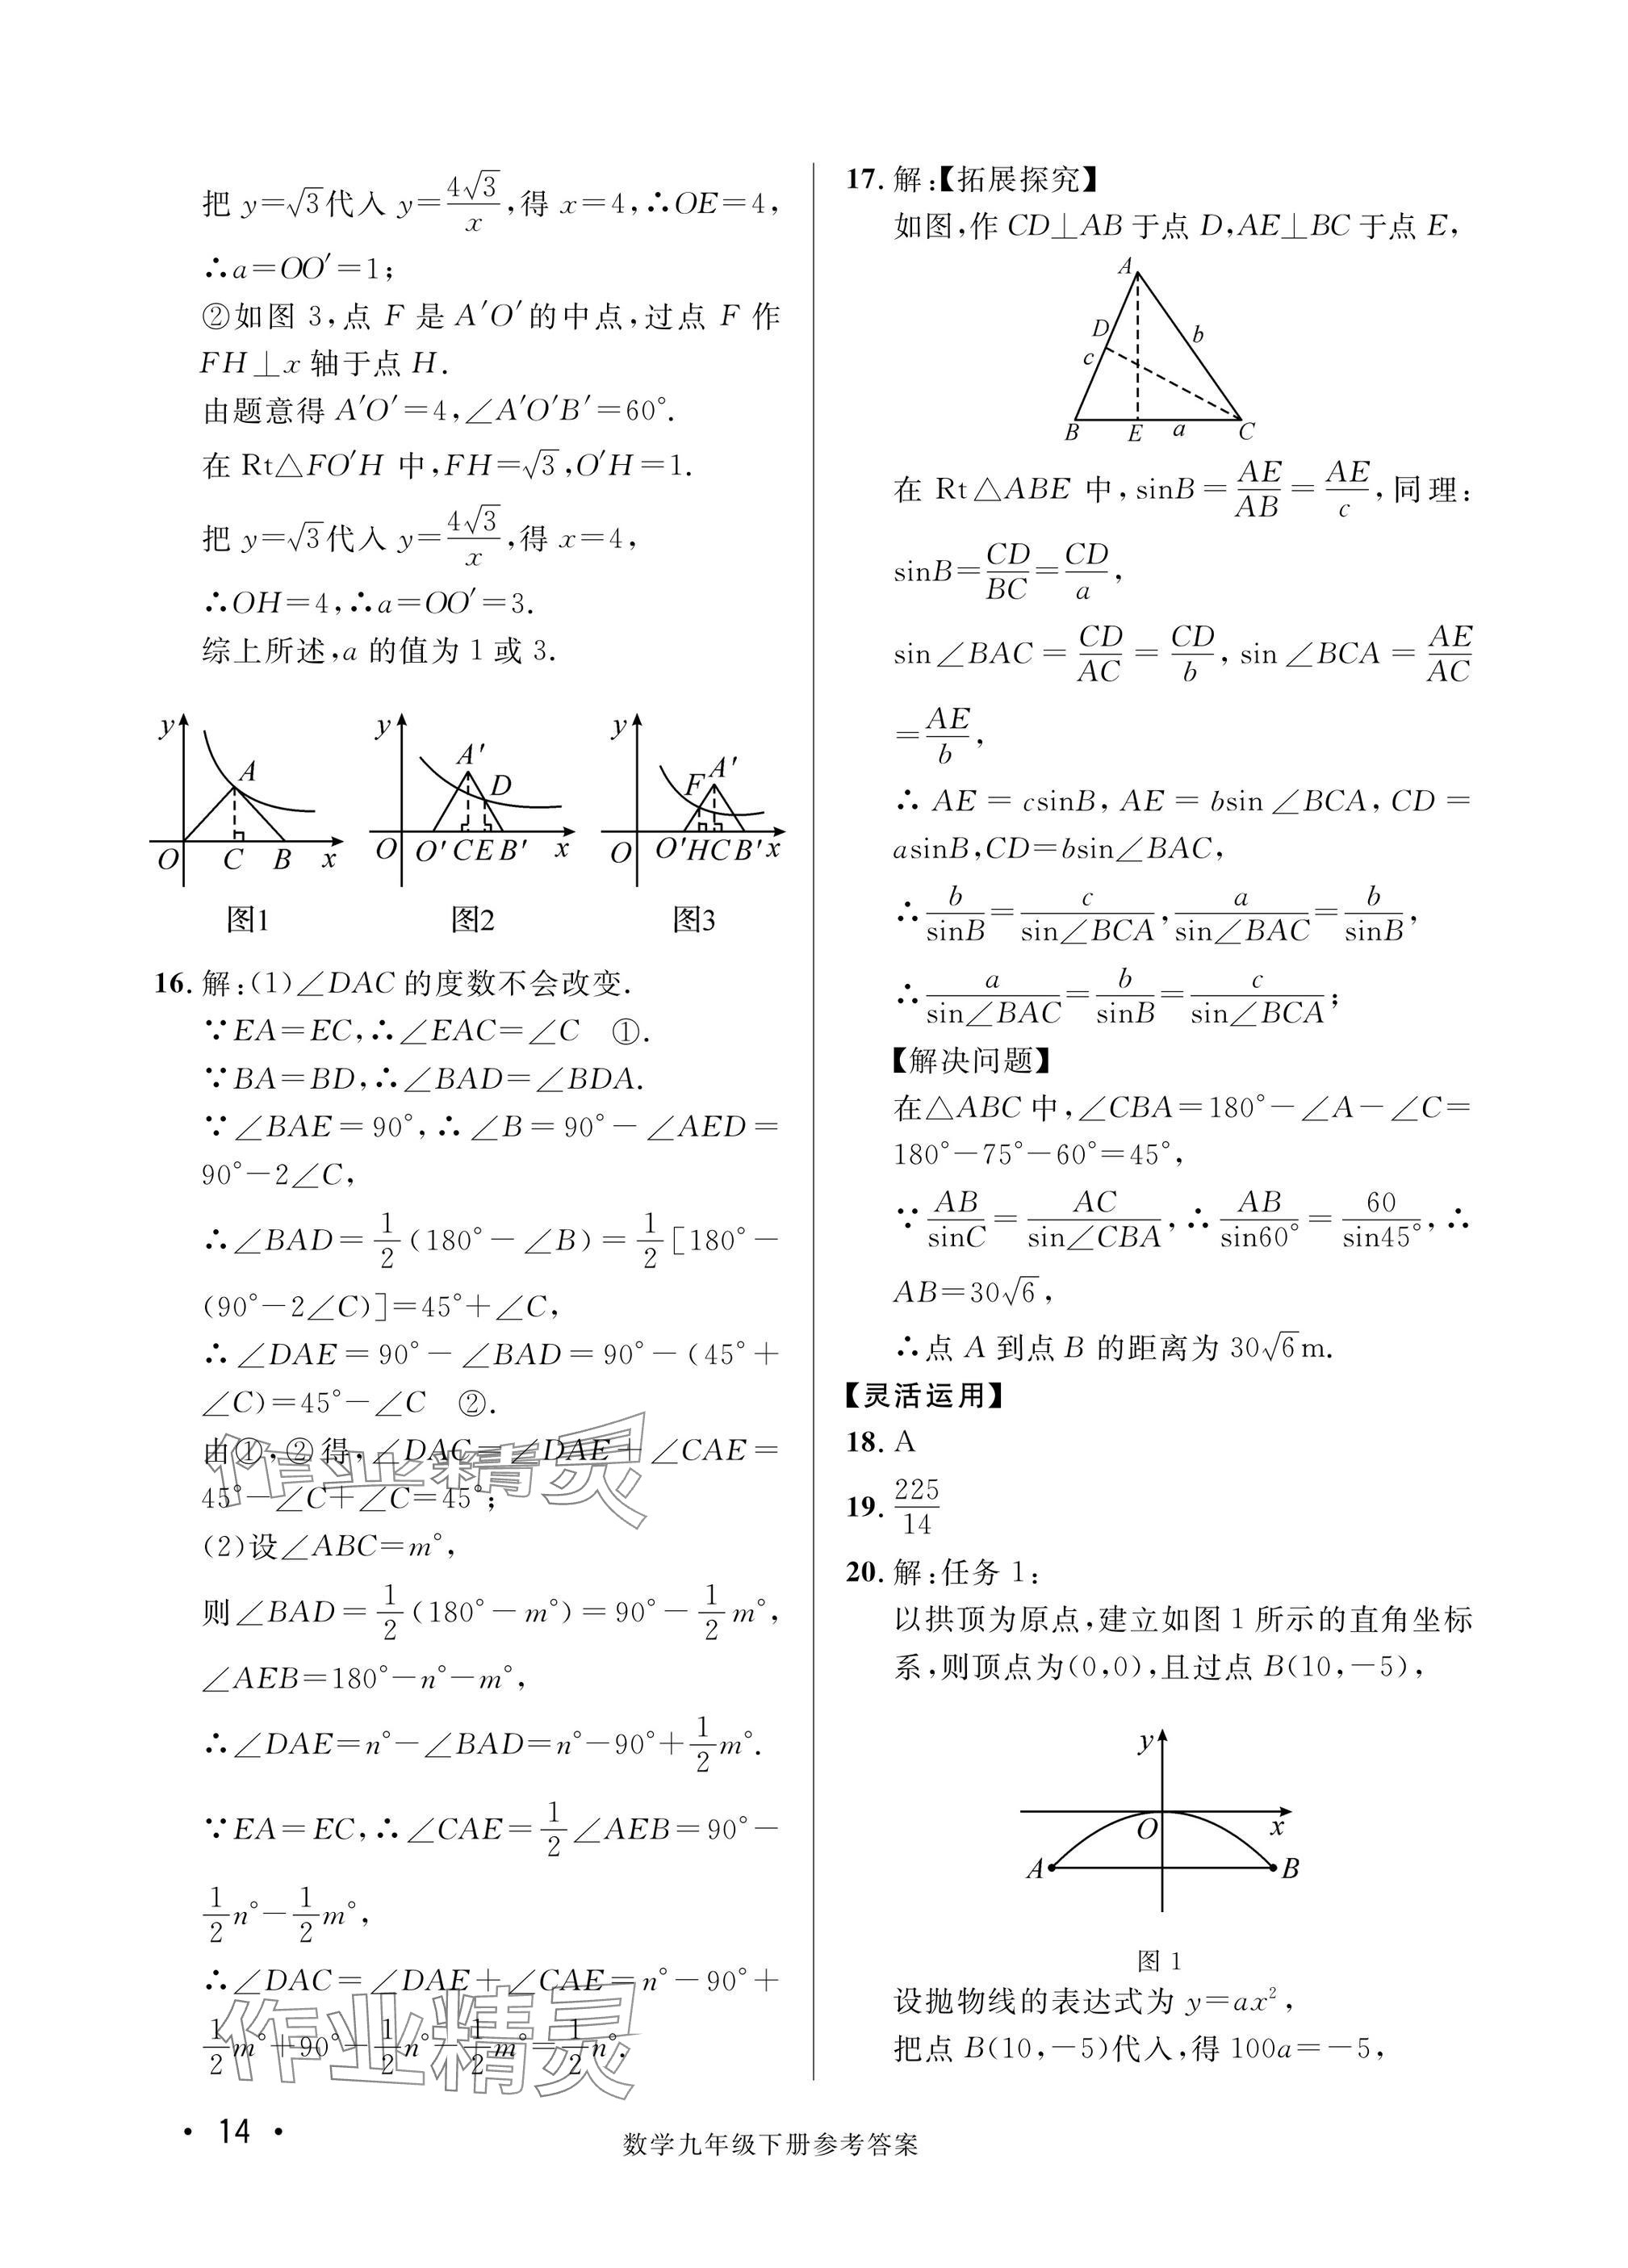 把 y=√3代入 y=4√3/x,得 x=4,∴OE=4,
∴a=OO′=1;
②如图 3,点 F 是 A′O′的中点,过点 F 作
FH⊥x 轴于点 H.
由题意得 A′O′=4,∠A′O′B′=60°.
在 Rt△FO′H 中,FH=√3,O′H=1.
把 y=√3代入 y=4√3/x,得 x=4,
∴OH=4,∴a=OO′=3.
综上所述,a 的值为 1 或 3.
y A O C B x
图1
y A′ D O O′ C E B′ x
图2
y F A′ O O′ H C B′ x
图3
16. 解:(1)∠DAC 的度数不会改变.
∵EA=EC,∴∠EAC=∠C ①.
∵BA=BD,∴∠BAD=∠BDA.
∵∠BAE=90°,∴∠B=90°-∠AED=
90°-2∠C,
∴∠BAD=1/2(180°-∠B)=1/2[180°-
(90°-2∠C)]=45°+∠C,
∴∠DAE=90°-∠BAD=90°-(45°+
∠C)=45°-∠C ②.
由①,②得,∠DAC=∠DAE+∠CAE=
45°-∠C+∠C=45°;
(2)设∠ABC=m°,
则∠BAD=1/2(180°-m°)=90°-1/2m°,
∠AEB=180°-n°-m°,
∴∠DAE=n°-∠BAD=n°-90°+1/2m°.
∵EA=EC,∴∠CAE=1/2∠AEB=90°-
1/2n°-1/2m°,
∴∠DAC=∠DAE+∠CAE=n°-90°+
1/2m°+90°-1/2n°-1/2m°=1/2n°.
作业精灵
作业精灵
17. 解:【拓展探究】
如图,作 CD⊥AB 于点 D,AE⊥BC 于点 E,
A D b c B E a C
在 Rt△ABE 中,sinB=AE/AB=AE/c,同理:
sinB=CD/BC=CD/a,
sin∠BAC=CD/AC=CD/b,sin∠BCA=AE/AC
=AE/b,
∴AE=csinB,AE=bsin∠BCA,CD=
asinB,CD=bsin∠BAC,
∴b/sinB=c/sin∠BCA,a/sin∠BAC=b/sinB,
∴a/sin∠BAC=b/sinB=c/sin∠BCA;
【解决问题】
在△ABC 中,∠CBA=180°-∠A-∠C=
180°-75°-60°=45°,
∵AB/sinC=AC/sin∠CBA,∴AB/sin60°=60/sin45°,∴
AB=30√6,
∴点 A 到点 B 的距离为 30√6m.
【灵活运用】
18. A
19. 225/14
20. 解:任务 1:
以拱顶为原点,建立如图 1 所示的直角坐标
系,则顶点为(0,0),且过点 B(10,-5),
y O x A B
图 1
设抛物线的表达式为 y=ax²,
把点 B(10,-5)代入,得 100a=-5,
· 14 ·
数学九年级下册参考答案